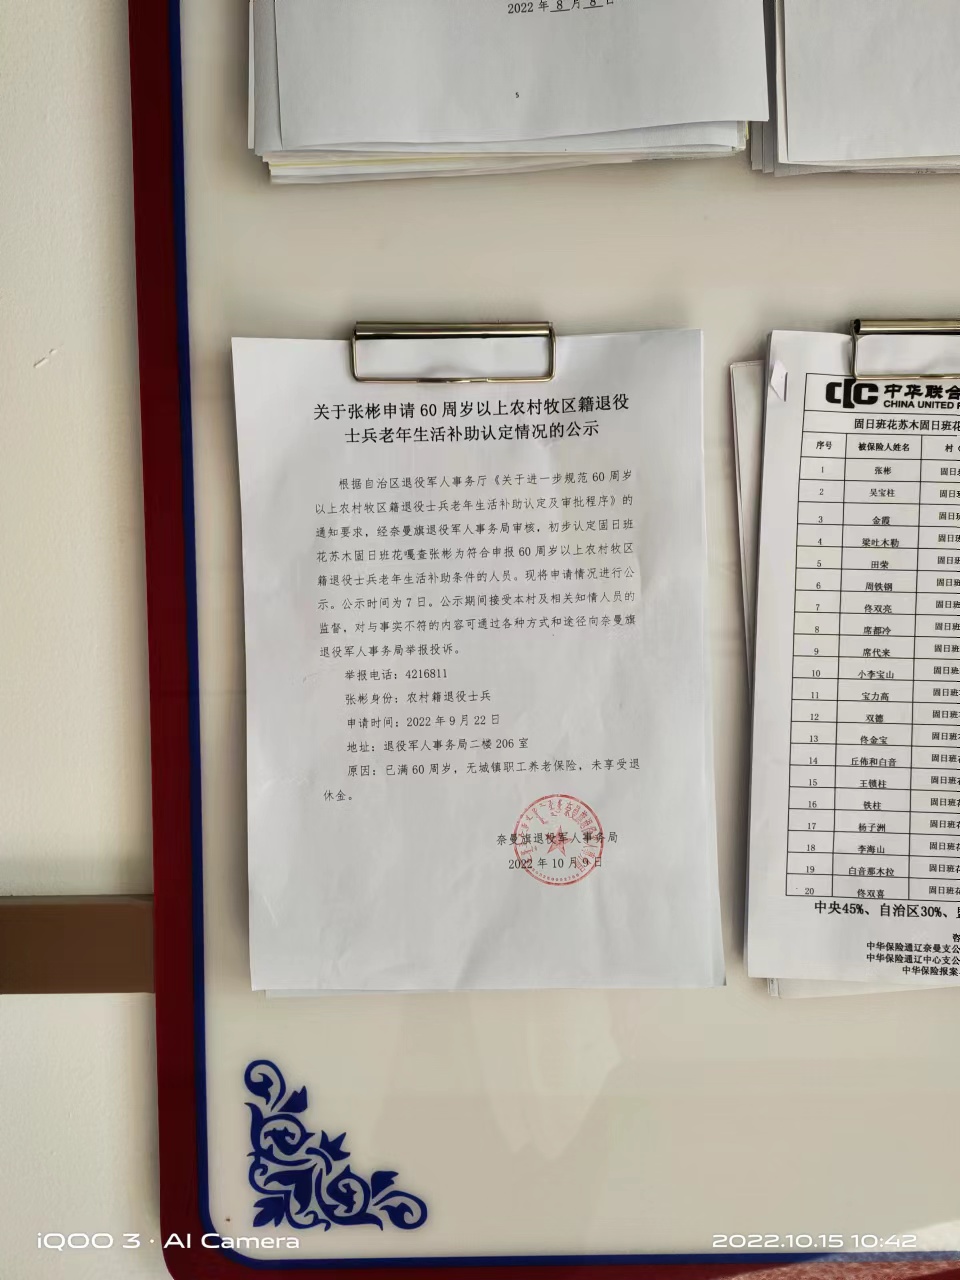 2022年 8 月 8 日
5
关于张彬申请60周岁以上农村牧区籍退役
士兵老年生活补助认定情况的公示
根据自治区退役军人事务厅《关于进一步规范60周岁
以上农村牧区籍退役士兵老年生活补助认定及审批程序》的
通知要求，经奈曼旗退役军人事务局审核，初步认定固日班
花苏木固日班花嘎查张彬为符合申报60周岁以上农村牧区
籍退役士兵老年生活补助条件的人员。现将申请情况进行公
示。公示时间为7日。公示期间接受本村及相关知情人员的
监督，对与事实不符的内容可通过各种方式和途径向奈曼旗
退役军人事务局举报投诉。
举报电话：4216811
张彬身份：农村籍退役士兵
申请时间：2022年9月22日
地址：退役军人事务局二楼206室
原因：已满60周岁，无城镇职工养老保险，未享受退
休金。
奈曼旗退役军人事务局
2022年10月9日
中华联合
CHINA UNITED
固日班花苏木固日班花
序号 被保险人姓名 村
1 张彬 固日
2 吴宝柱 固日
3 金霞 固日
4 梁吐木勒 固日班
5 田荣 固日班
6 周铁钢 固日班
7 佟双亮 固日班
8 席都冷 固日班
9 席代来 固日班
10 小李宝山 固日班
11 宝力高 固日班
12 双德 固日班
13 佟金宝 固日班
14 丘佈和白音 固日班花
15 王锁柱 固日班花
16 铁柱 固日班花
17 杨子洲 固日班花
18 李海山 固日班花
19 白音那木拉 固日班花
20 佟双喜 固日班花
中央45%、自治区30%、
中华保险通辽奈曼支公
中华保险通辽中心支公
中华保险报案
iQOO 3 · AI Camera
2022.10.15 10:42